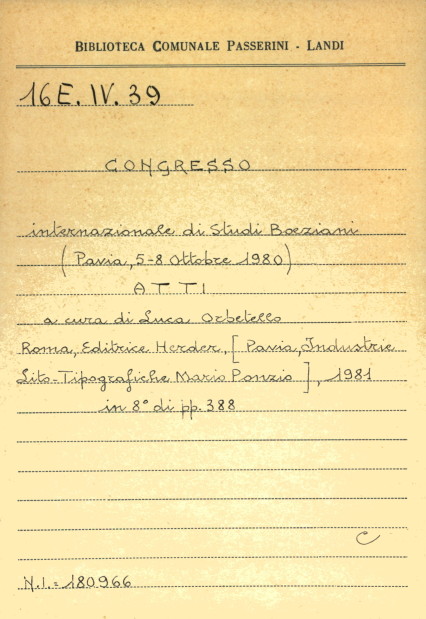 BIBLIOTECA COMUNALE PASSERINI - LANDI
16 E. IV. 39
CONGRESSO
internazionale di Studi Boeziani
(Pavia, 5-8 Ottobre 1980)
ATTI
a cura di Luca Orbetello
Roma, Editrice Herder, [Pavia, Industrie
Lito-Tipografiche Mario Ponzio], 1981
in 8° di pp. 388
C
N.I. = 180966